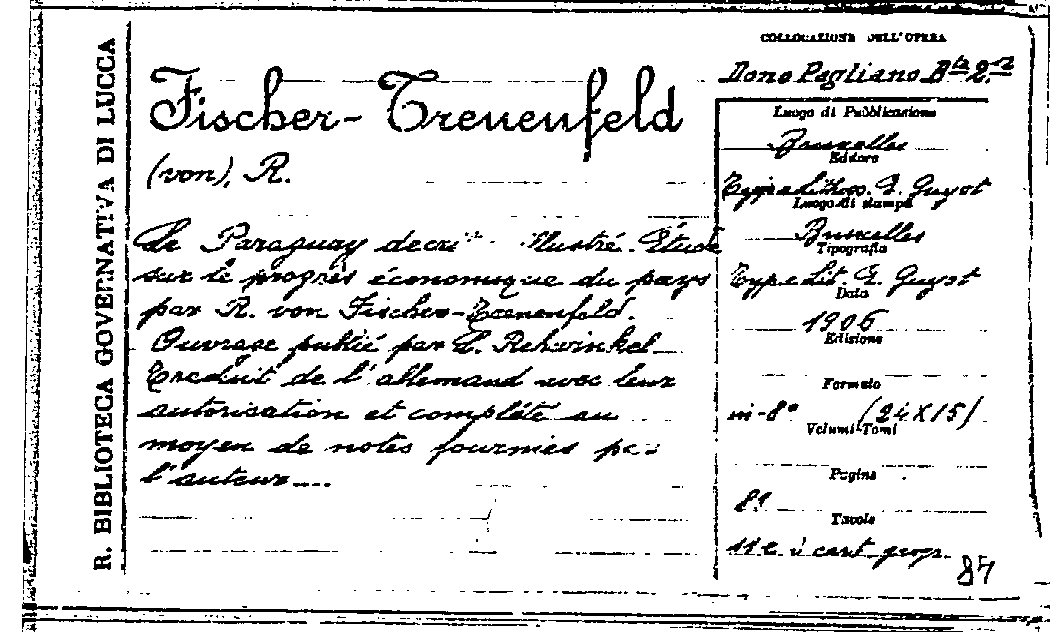 R. BIBLIOTECA GOVERNATIVA DI LUCCA
Fischer-Treuenfeld
(von), R.
Le Paraguay décri illustré. Étude
sur le progrès économique du pays
par R. von Fischer-Treuenfeld.
Ouvrage publié par L. Rehwinkel
Traduit de l'allemand avec leur
autorisation et complété au
moyen de notes fournies pa
l'auteur....
COLLOCAZIONE DELL'OPERA
Dono Pagliano B.ta 2.a
Luogo di Pubblicazione
Bruxelles
Editore
Guyot
Luogo di stampa
Bruxelles
Tipografia
Typ. e Lit. Guyot
Data
1906
Edizione
Formato
in-8° (24x15)
Volumi-Tomi
Pagine
81
Tavole
11 e 1 cart. geogr.
87